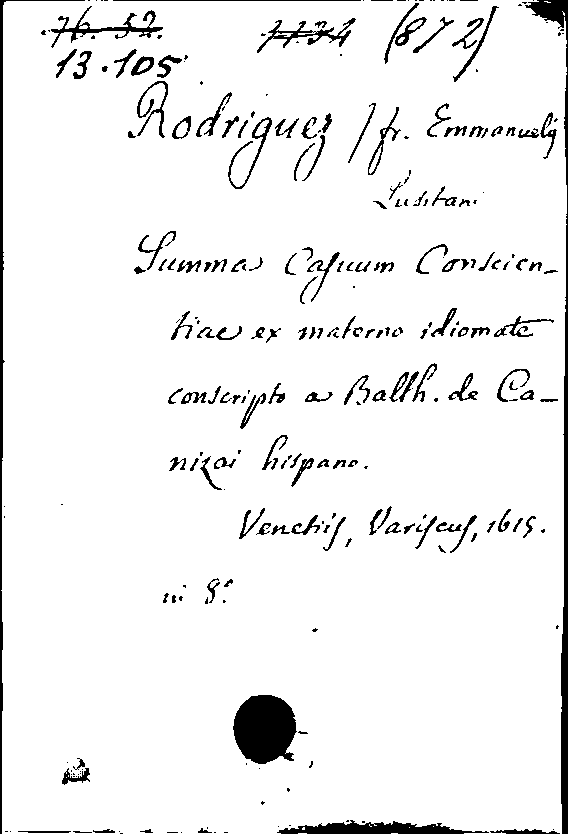 76. 52. 1134 (872)
13.105
Rodriguez / fr. Emmanuelis
Lusitani
Summa Casuum Conscien-
tiae ex materno idiomate
conscripto a Balth. de Ca-
nizai hispano.
Venetiis, Variscus, 1615.
in 8.°